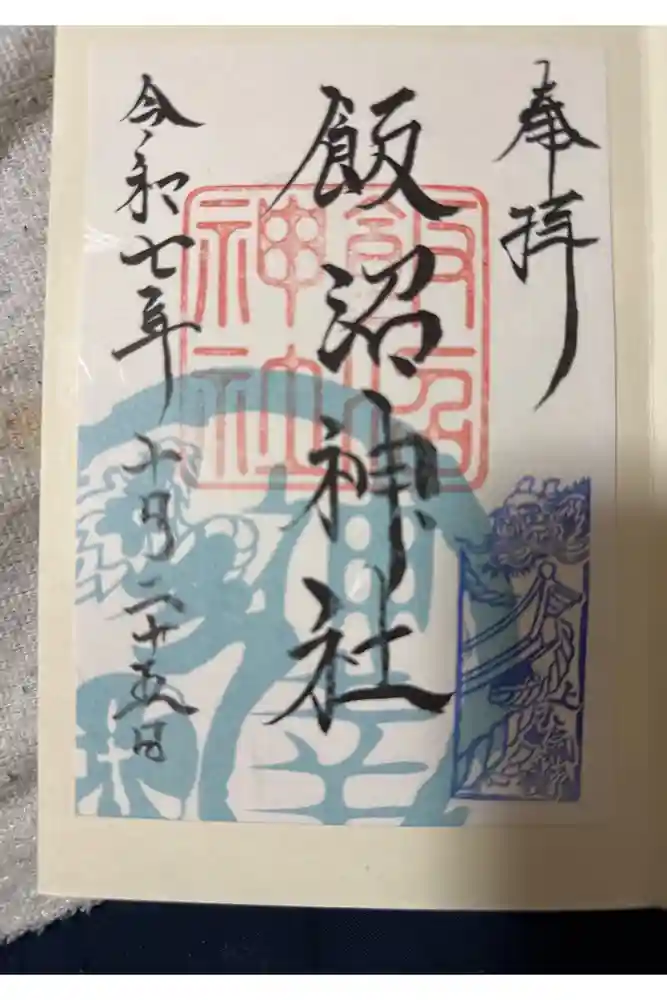 奉拝
飯沼神社
令和七年十月二十五日
飯沼
神社